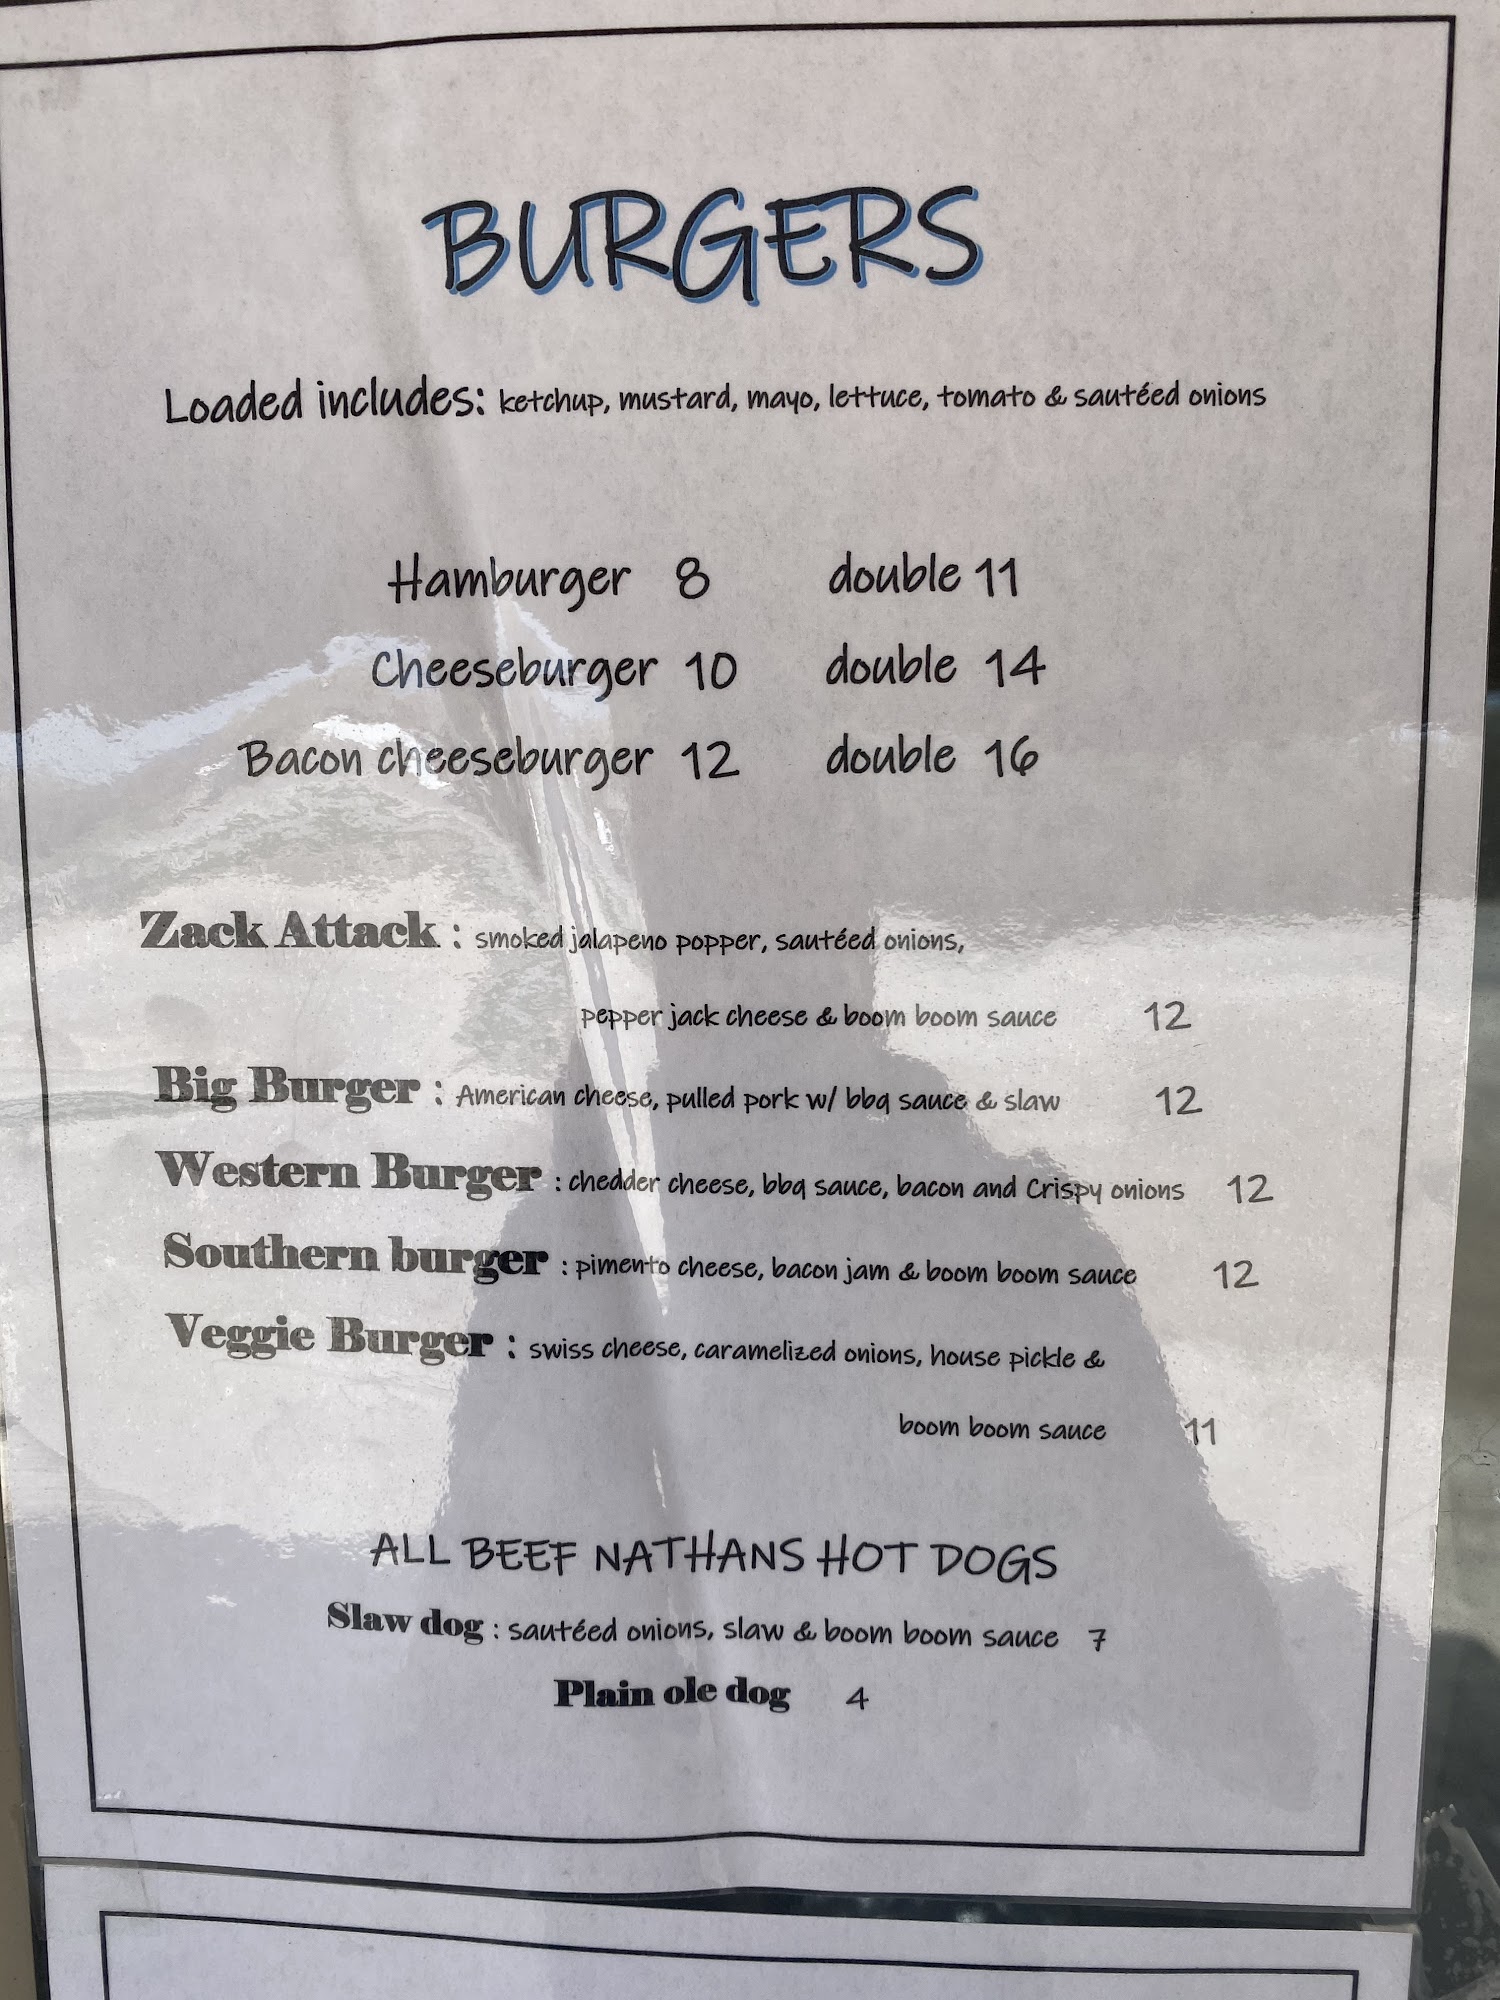 BURGERS
Loaded includes: ketchup, mustard, mayo, lettuce, tomato & sautéed onions
Hamburger 8 double 11
Cheeseburger 10 double 14
Bacon cheeseburger 12 double 16
Zack Attack : smoked jalapeno popper, sautéed onions,
pepper jack cheese & boom boom sauce 12
Big Burger : American cheese, pulled pork w/ bbq sauce & slaw 12
Western Burger : chedder cheese, bbq sauce, bacon and Crispy onions 12
Southern burger : pimento cheese, bacon jam & boom boom sauce 12
Veggie Burger : swiss cheese, caramelized onions, house pickle &
boom boom sauce 11
ALL BEEF NATHANS HOT DOGS
Slaw dog : sautéed onions, slaw & boom boom sauce 7
Plain ole dog 4